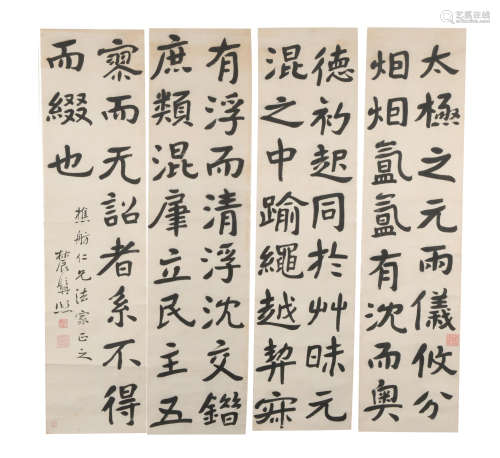 太極之元兩儀攸分
烟烟氳氳有沈而奧
德初起同於艸昧元
混之中踰繩越契寂
有浮而清浮沈交錯
庶類混肇立民主五
寥而无詔者系不得
而綴也
樵舫仁兄法家正之
農髯熙
艺狐在线